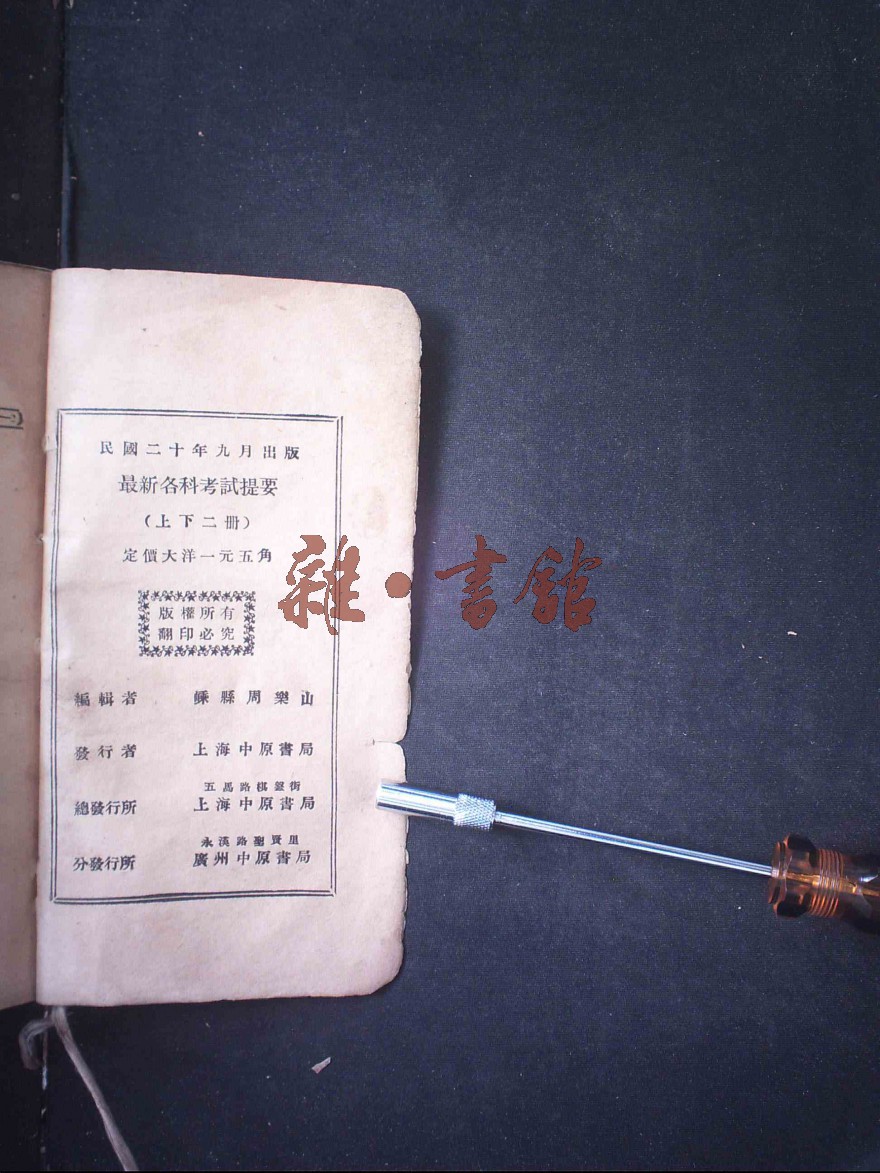 民國二十年九月出版
最新各科考試提要
（上下二册）
定價大洋一元五角
版權所有
翻印必究
編輯者 嵊縣周樂山
發行者 上海中原書局
五馬路棋盤街
總發行所 上海中原書局
永漢路聖賢里
分發行所 廣州中原書局
雜·書館